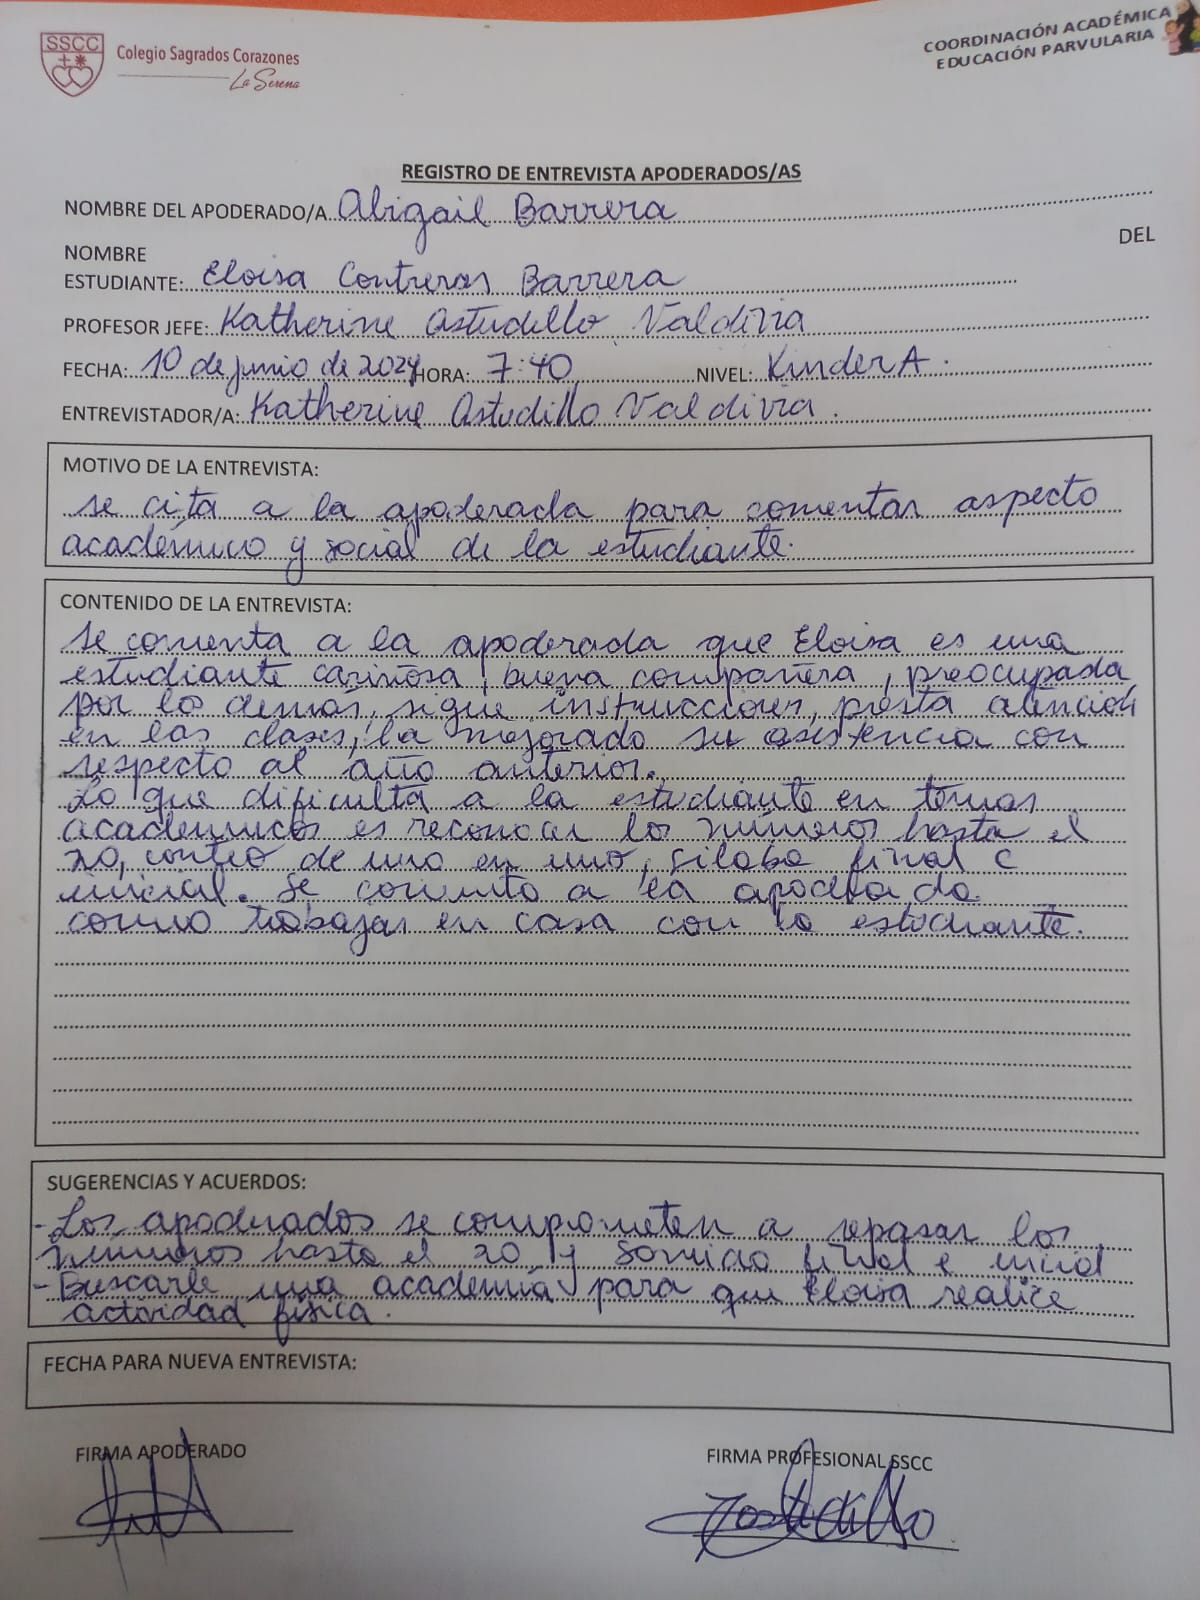 SSCC
Colegio Sagrados Corazones
La Serena
COORDINACIÓN ACADÉMICA
EDUCACIÓN PARVULARIA
REGISTRO DE ENTREVISTA APODERADOS/AS
NOMBRE DEL APODERADO/A Abigail Barrera
NOMBRE DEL
ESTUDIANTE: Eloisa Contreras Barrera
PROFESOR JEFE: Katherine Astudillo Valdivia
FECHA: 10 de junio de 2024 HORA: 7:40 NIVEL: Kinder A.
ENTREVISTADOR/A: Katherine Astudillo Valdivia.
MOTIVO DE LA ENTREVISTA:
Se cita a la apoderada para comentar aspecto
académico y social de la estudiante.
CONTENIDO DE LA ENTREVISTA:
Se comenta a la apoderada que Eloisa es una
estudiante cariñosa, buena compañera, preocupada
por lo demás, sigue instrucciones, presta atención
en las clases, ha mejorado su asistencia con
respecto al año anterior.
Lo que dificulta a la estudiante en temas
académicos es reconocer los números hasta el
20, conteo de uno en uno, silaba final e
inicial. Se comento a la apoderada
como trabajar en casa con la estudiante.
SUGERENCIAS Y ACUERDOS:
- Los apoderados se comprometen a repasar los
números hasta el 20 y sonido final e inicial
- Buscarle una academia para que Eloisa realice
actividad física.
FECHA PARA NUEVA ENTREVISTA:
FIRMA APODERADO FIRMA PROFESIONAL SSCC